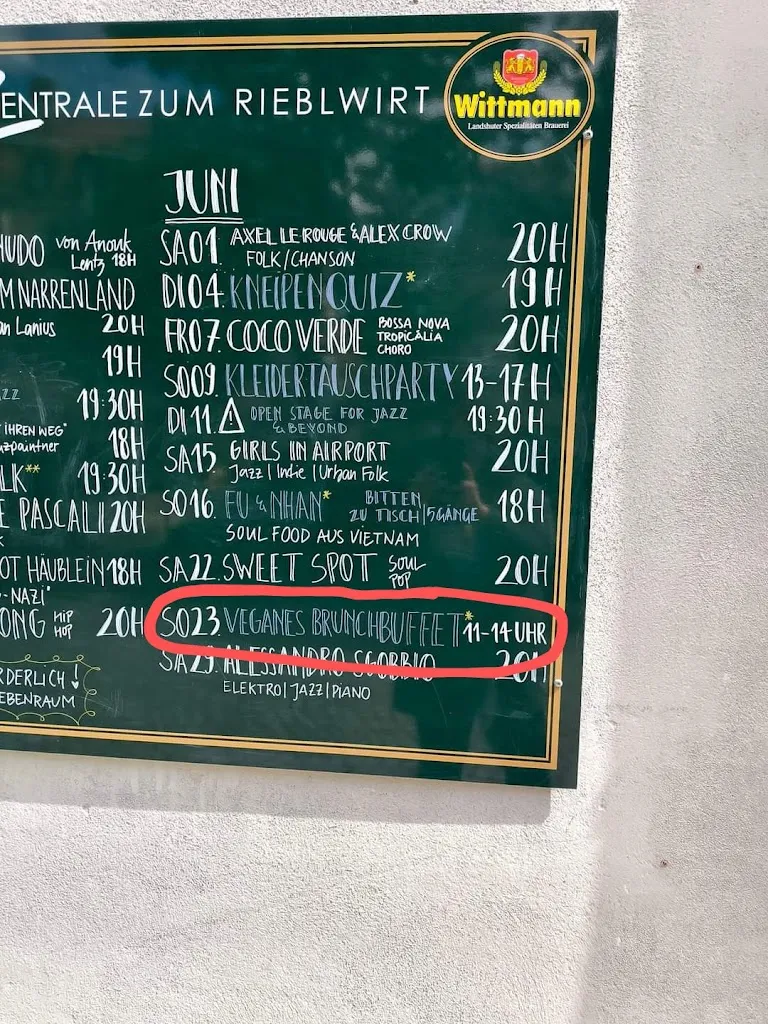 ENTRALE ZUM RIEBLWIRT
Wittmann
Landshuter Spezialitäten Brauerei
HUDO von Anouk
Lentz 18H
M NARRENLAND
an Lanius 20H
19H
ZZ 19:30H
IHREN WEG"
uzpaintner 18H
LK** 19:30H
E PASCAL II 20H
OT HÄUBLEIN 18H
-NAZI"
ONG HIP HOP 20H
RDERLICH !
EBENRAUM
JUNI
SA01. AXEL LE ROUGE & ALEX CROW 20H
FOLK/CHANSON
DI04. KNEIPENQUIZ* 19H
FR07. COCO VERDE BOSSA NOVA TROPICÀLIA CHORO 20H
SO09. KLEIDERTAUSCHPARTY 13-17H
DI11. OPEN STAGE FOR JAZZ & BEYOND 19:30H
SA15. GIRLS IN AIRPORT 20H
Jazz | Indie | Urban Folk
SO16. FU & NHAN* BITTEN ZU TISCH | 5 GÄNGE 18H
SOUL FOOD AUS VIETNAM
SA22. SWEET SPOT SOUL POP 20H
SO23. VEGANES BRUNCHBUFFET* 11-14 UHR
SA29. ALESSANDRO SGOBBIO 20H
ELEKTRO | JAZZ | PIANO